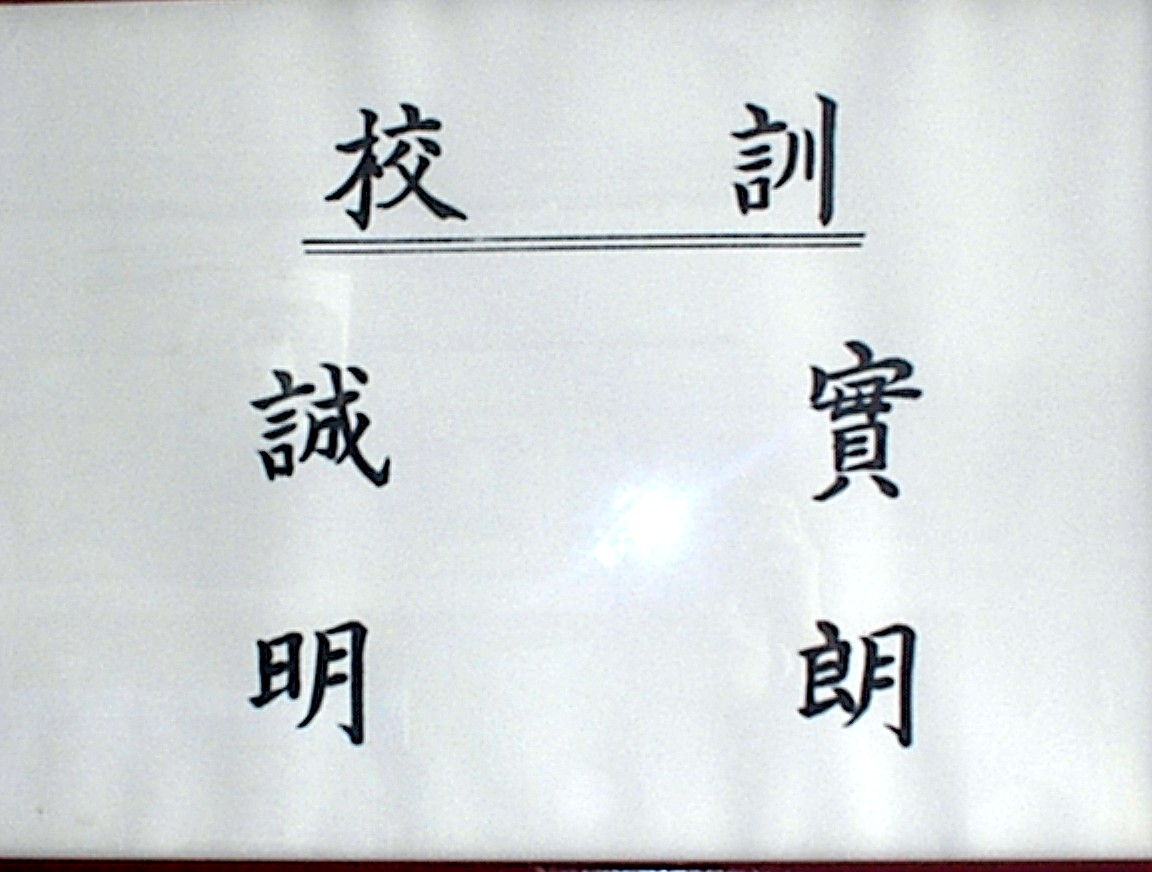 校訓
誠實
明朗